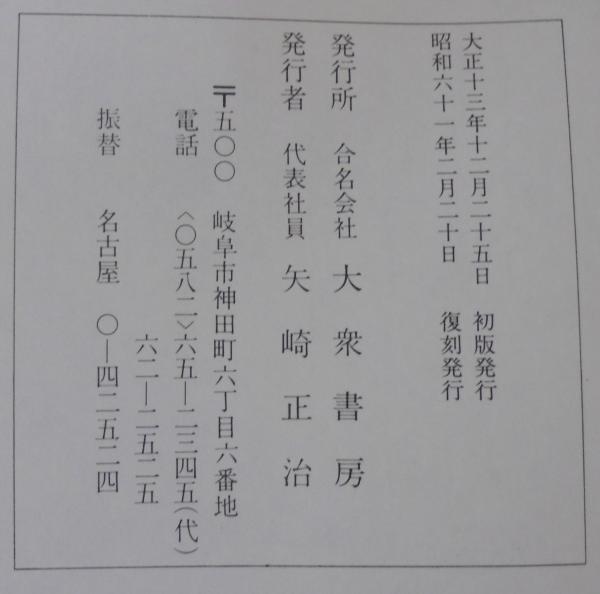 大正十三年十二月二十五日 初版発行
昭和六十一年二月二十日 復刻発行
発行所 合名会社 大衆書房
発行者 代表社員 矢崎正治
〒五〇〇 岐阜市神田町六丁目六番地
電話 〈〇五八二〉六五―二三四五(代)
六二―二五二五
振替 名古屋 〇―四二五二四